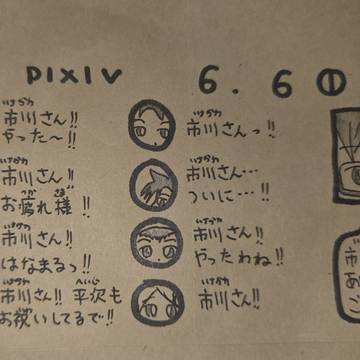 pixiv 6.6①
いちかわ
市川さん!!
やった〜!!
いちかわ
市川さん!!
つか さま
お疲れ様!!
いちかわ
市川さん!!
はなまるっ!!
いちかわ へいじ
市川さん!! 平次も
いわ
お祝いしてるで!!
いちかわ
市川さんっ!!
いちかわ
市川さん…
ついに…!!
いちかわ
市川さん!!
やったわね!!
いちかわ
市川さん!!